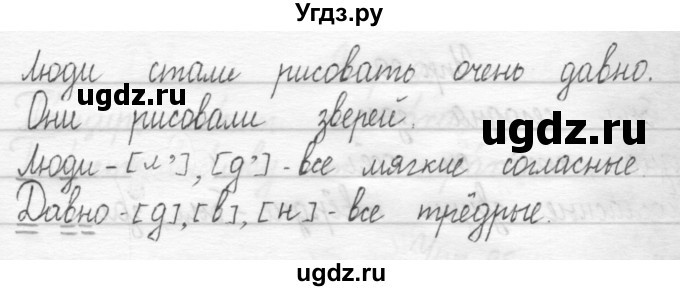 Угдз.ру
Люди стали рисовать очень давно.
Они рисовали зверей.
Люди - [л'], [д'] - все мягкие согласные.
Давно - [д], [в], [н] - все трёдрые.
ugdz.ru
ugdz.ru
ugdz.ru
ugdz.ru
ugdz.ru